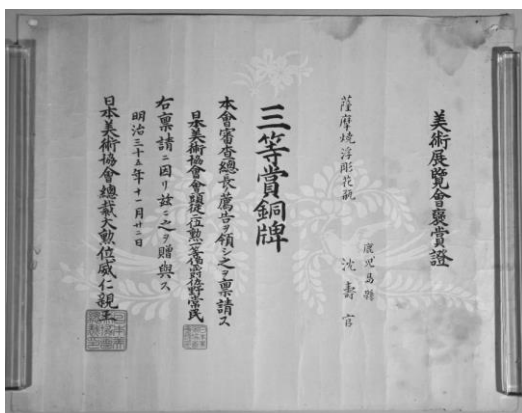 美術展覽會褒賞證
鹿児島縣
沈壽官
薩摩焼浮彫花瓶
三等賞銅牌
本會審査總長ノ薦告ヲ領シ之ヲ稟請ス
日本美術協會會頭從二位勲一等伯爵佐野常民
右稟請ニ因リ茲ニ之ヲ贈與ス
明治三十五年十一月廿二日
日本美術協會總裁大勲位威仁親王